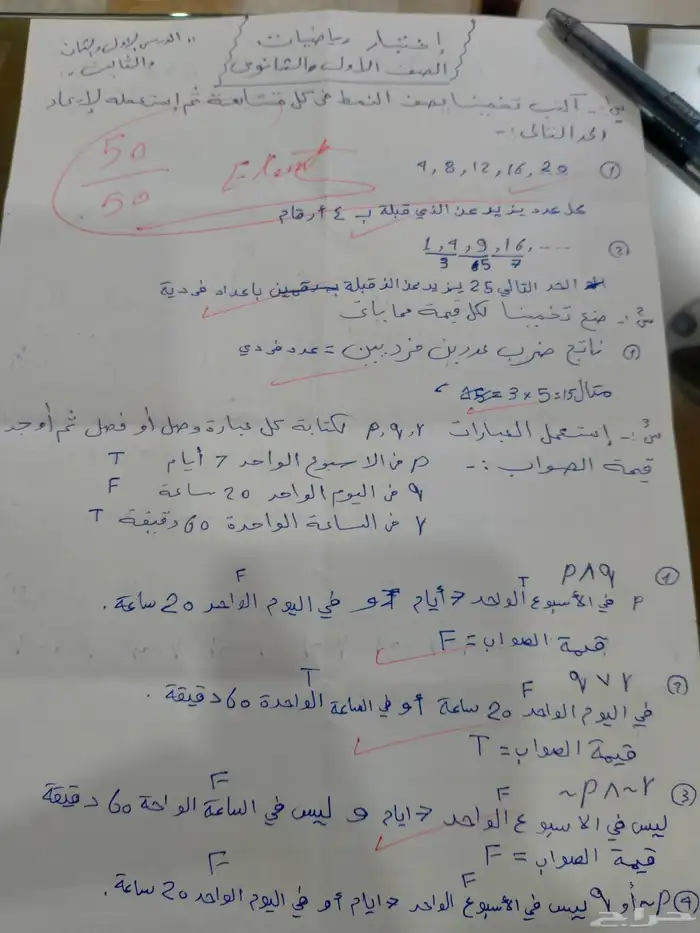 إختبار رياضيات
الصف الأول الثانوي
" الدرس الأول والثاني والثالث "
س١:- أكتب تخمينا يصف النمط في كل متتابعة ثم إستعمله لإيجاد
الحد التالي :-
50
50
① 4, 8, 12, 16, 20
كل عدد يزيد عن الذي قبلة ب 4 أرقام
② 1, 4, 9, 16, ----
3 5 7
الحد التالي 25 يزيد عن الذ قبلة باعداد فردية
س٢:- ضع تخمينا لكل قيمة مما يأتي
① ناتج ضرب عددين فرديين = عدد فردي
مثال 15=5×3
س٣:- إستعمل العبارات p, q, r لكتابة كل عبارة وصل أو فصل ثم أوجد
قيمة الصواب :-
p في الاسبوع الواحد 7 أيام T
q في اليوم الواحد 20 ساعة F
r في الساعة الواحدة 60 دقيقة T
① p∧q
F
p في الأسبوع الواحد 7 أيام T و في اليوم الواحد 20 ساعة.
قيمة الصواب = F
② q∨r
F T
في اليوم الواحد 20 ساعة أو في الساعة الواحدة 60 دقيقة.
قيمة الصواب = T
③ ~p∧~r
F F
ليس في الاسبوع الواحد 7 ايام و ليس في الساعة الواحة 60 دقيقة
قيمة الصواب = F
F F
④ ~p أو q ليس في الأسبوع الواحد 7 ايام أو في اليوم الواحد 20 ساعة.
حراج